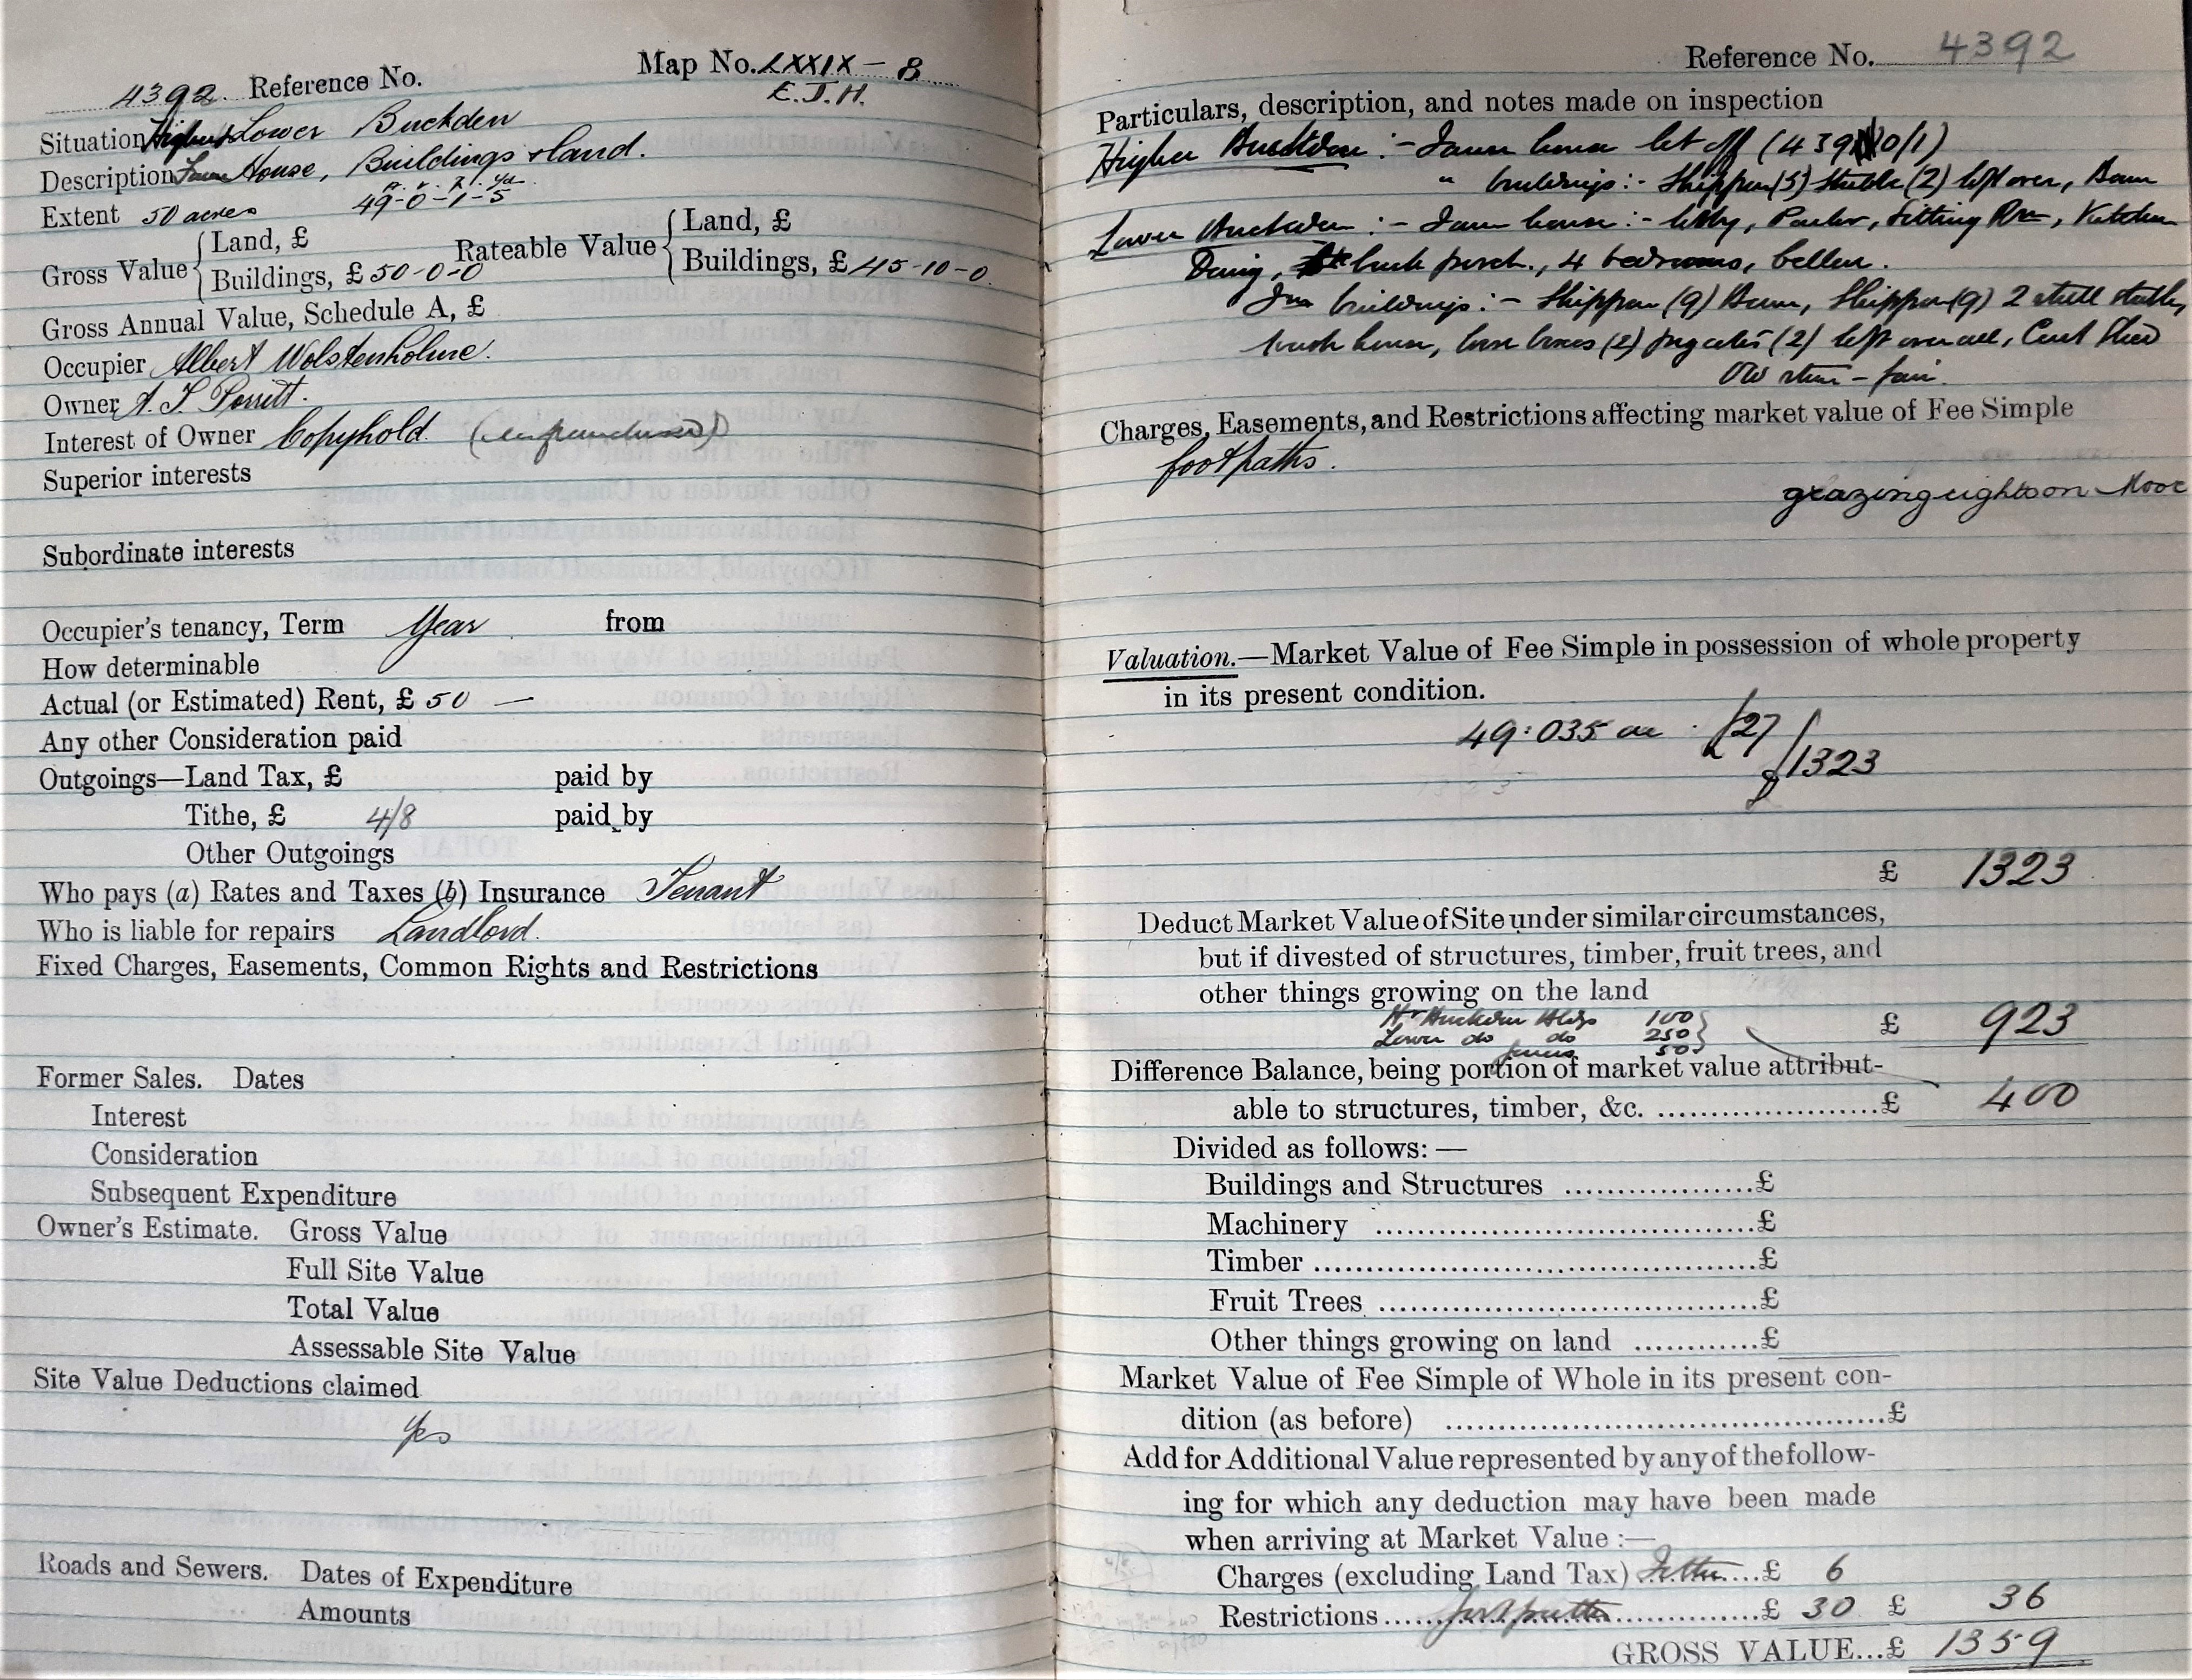 4392. Reference No. Map No. LXXIX - 8
E.J.H.
Situation Higher & Lower Buckden
Description Farm House, Buildings & land.
a. r. p. yd.
Extent 50 acres 49-0-1-5
Gross Value { Land, £
Buildings, £ 50-0-0
Rateable Value { Land, £
Buildings, £ 45-10-0.
Gross Annual Value, Schedule A, £
Occupier Albert Wolstenholme.
Owner A. T. Porritt.
Interest of Owner Copyhold. (enfranchised)
Superior interests
Subordinate interests
Occupier's tenancy, Term Year from
How determinable
Actual (or Estimated) Rent, £ 50 —
Any other Consideration paid
Outgoings—Land Tax, £ paid by
Tithe, £ 4/8 paid by
Other Outgoings
Who pays (a) Rates and Taxes (b) Insurance Tenant
Who is liable for repairs Landlord.
Fixed Charges, Easements, Common Rights and Restrictions
Former Sales. Dates
Interest
Consideration
Subsequent Expenditure
Owner's Estimate. Gross Value
Full Site Value
Total Value
Assessable Site Value
Site Value Deductions claimed
Yes
Roads and Sewers. Dates of Expenditure
Amounts
Reference No. 4392
Particulars, description, and notes made on inspection
Higher Buckden :- Farm house let off (4390/1)
" buildings:- Shippon (5) Stable (2) loft over, Barn
Lower Buckden :- Farm house :- lobby, Parlor, Sitting Rm, Kitchen
Dairy, back porch., 4 bedrooms, cellar.
Farm buildings :- Shippon (9) Barn, Shippon (9) 2 stall stable,
wash house, loose boxes (2) pigcotes (2) loft over all, Cart Shed
Old stone - fair.
Charges, Easements, and Restrictions affecting market value of Fee Simple
footpaths.
grazing rights on Moor
Valuation.—Market Value of Fee Simple in possession of whole property
in its present condition.
49.035 ac £27
£1323
£ 1323
Deduct Market Value of Site under similar circumstances,
but if divested of structures, timber, fruit trees, and
other things growing on the land
Hr Buckden Bldgs 100
Lower do do 250
fences 50
£ 923
Difference Balance, being portion of market value attribut-
able to structures, timber, &c. ....................£ 400
Divided as follows: —
Buildings and Structures ..................£
Machinery ....................................£
Timber ..........................................£
Fruit Trees ....................................£
Other things growing on land ............£
Market Value of Fee Simple of Whole in its present con-
dition (as before) ..........................................£
Add for Additional Value represented by any of the follow-
ing for which any deduction may have been made
when arriving at Market Value :—
Charges (excluding Land Tax) Tithe....£ 6
Restrictions.....footpaths..........£ 30 £ 36
GROSS VALUE...£ 1359